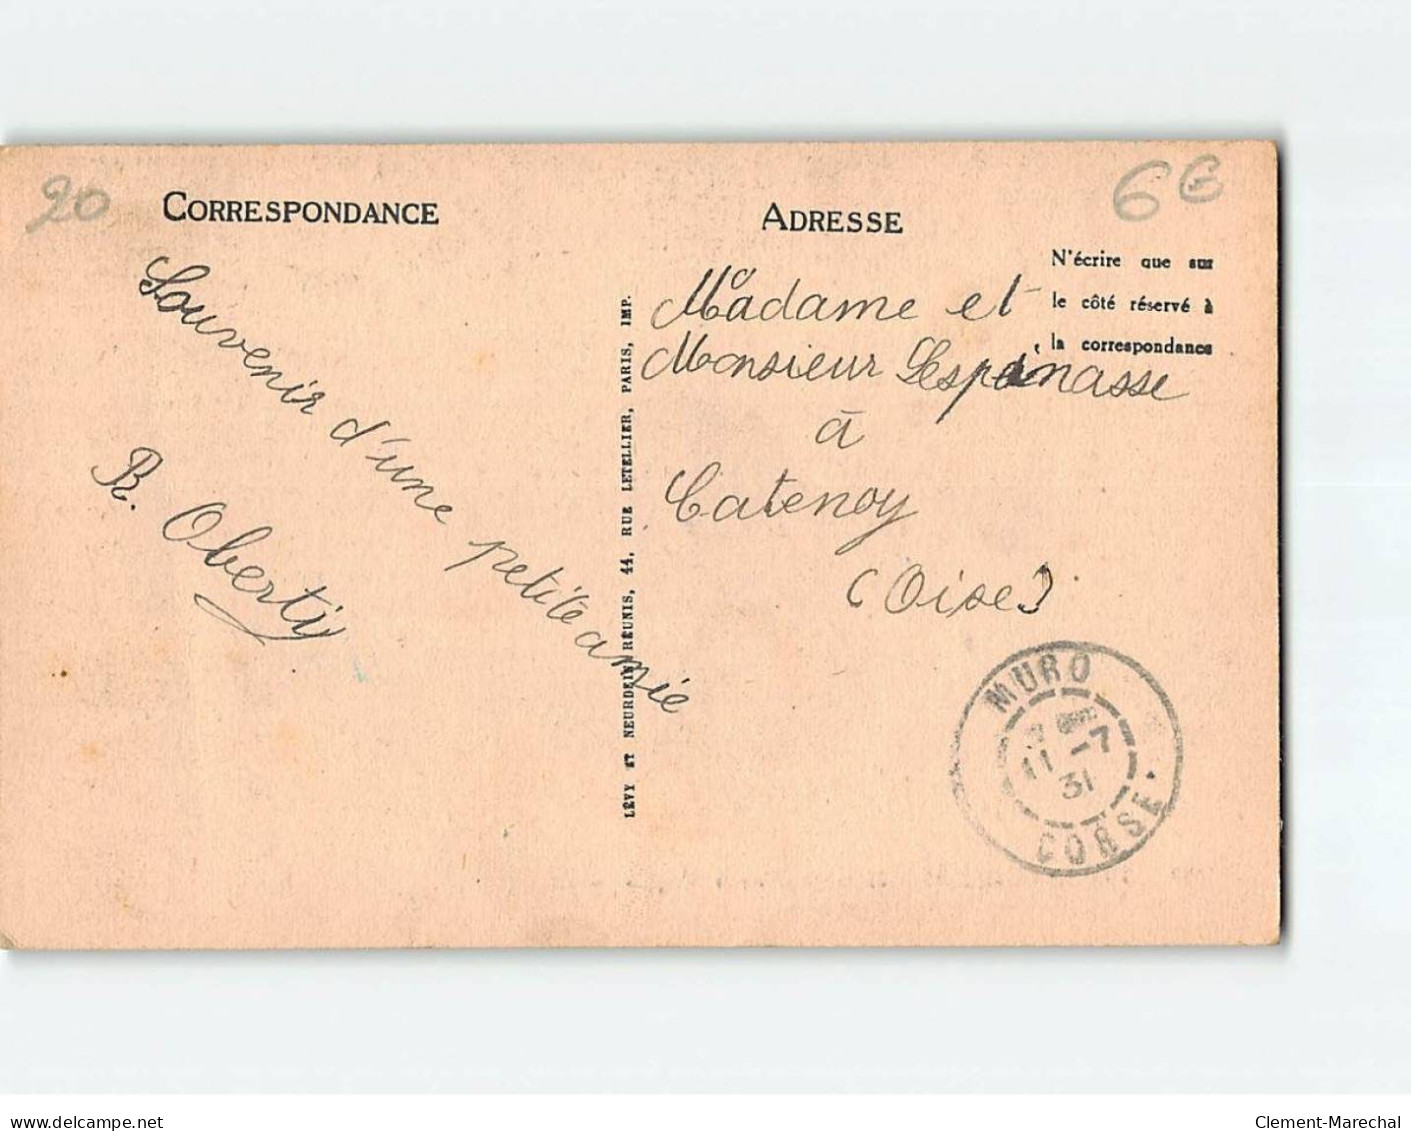 20
CORRESPONDANCE
Souvenir d'une petite amie
R. Oberti
LÉVY ET NEURDEIN RÉUNIS, 44, RUE LETELLIER, PARIS, IMP.
6€
ADRESSE
N'écrire que sur
le côté réservé à
la correspondance
Madame et
Monsieur Lespinasse
à
Catenoy
(Oise)
MURO
11-7
31
CORSE
delcampe.net
Clement-Marechal